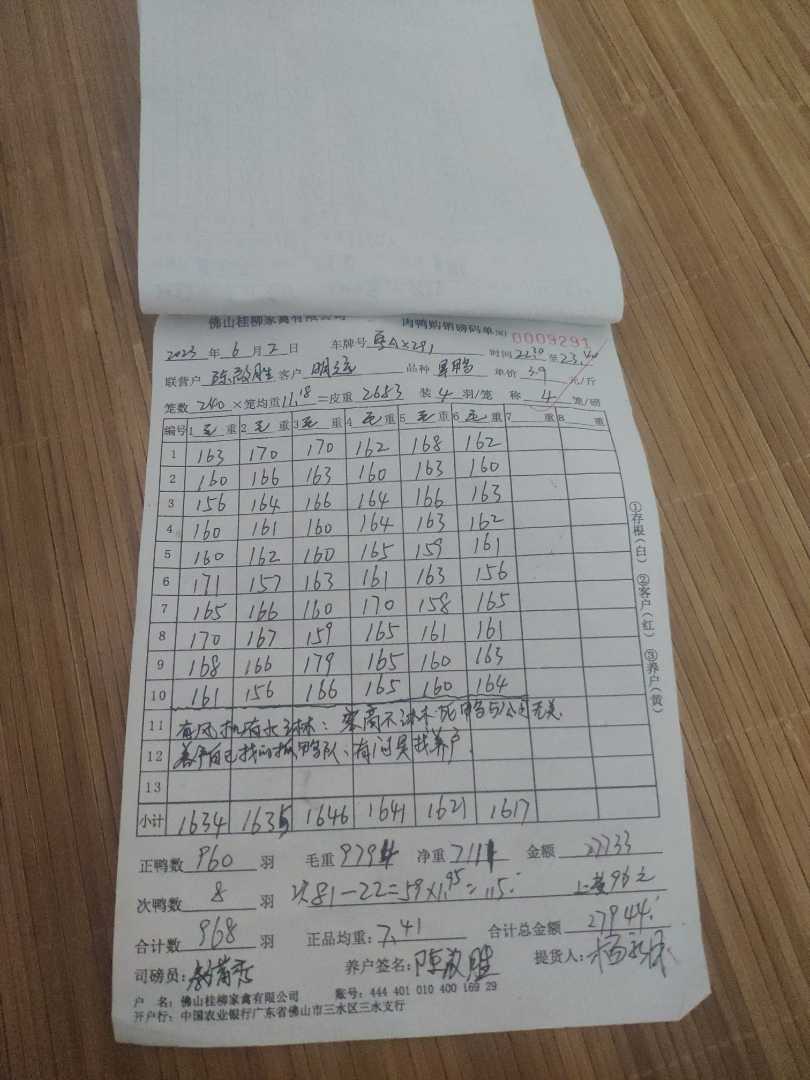 佛山桂柳家禽有限公司 肉鸭购销磅码单 NO 0009291
2023 年 6 月 2 日 车牌号 粤AX291 时间 22:30 至 23:40
联营户 陈效胜 客户 品种 单价 3.9 元/斤
笼数 240 ×笼均重 11.18 =皮重 2683 装 4 羽/笼 称 4 笼/磅
编号 1 毛 重 2 毛 重 3 毛 重 4 毛 重 5 毛 重 6 毛 重 7 重 8 重
1 163 170 170 162 168 162
2 160 166 163 160 163 160
3 156 164 166 164 166 163
4 160 161 160 164 163 162
5 160 162 160 165 159 161
6 171 157 163 161 163 156
7 165 166 160 170 158 165
8 170 167 159 165 161 161
9 168 166 179 165 160 163
10 161 156 166 165 160 164
11 有风机有水淋：客商不淋水死鸭与公司无关.
12 养户自己找的抓鸭队、有问题找养户.
13
小计 1634 1635 1646 1641 1621 1617
正鸭数 960 羽 毛重 9794 净重 7111 金额 27733
次鸭数 8 羽 次81-22=59×1.95=115. 96元
合计数 968 羽 正品均重: 7.41 合计总金额 27944.
司磅员: 养户签名: 陈效胜 提货人:
户 名: 佛山桂柳家禽有限公司 账号: 444 401 010 400 169 29
开户行: 中国农业银行广东省佛山市三水区三水支行
①存根(白) ②客户(红) ③养户(黄)